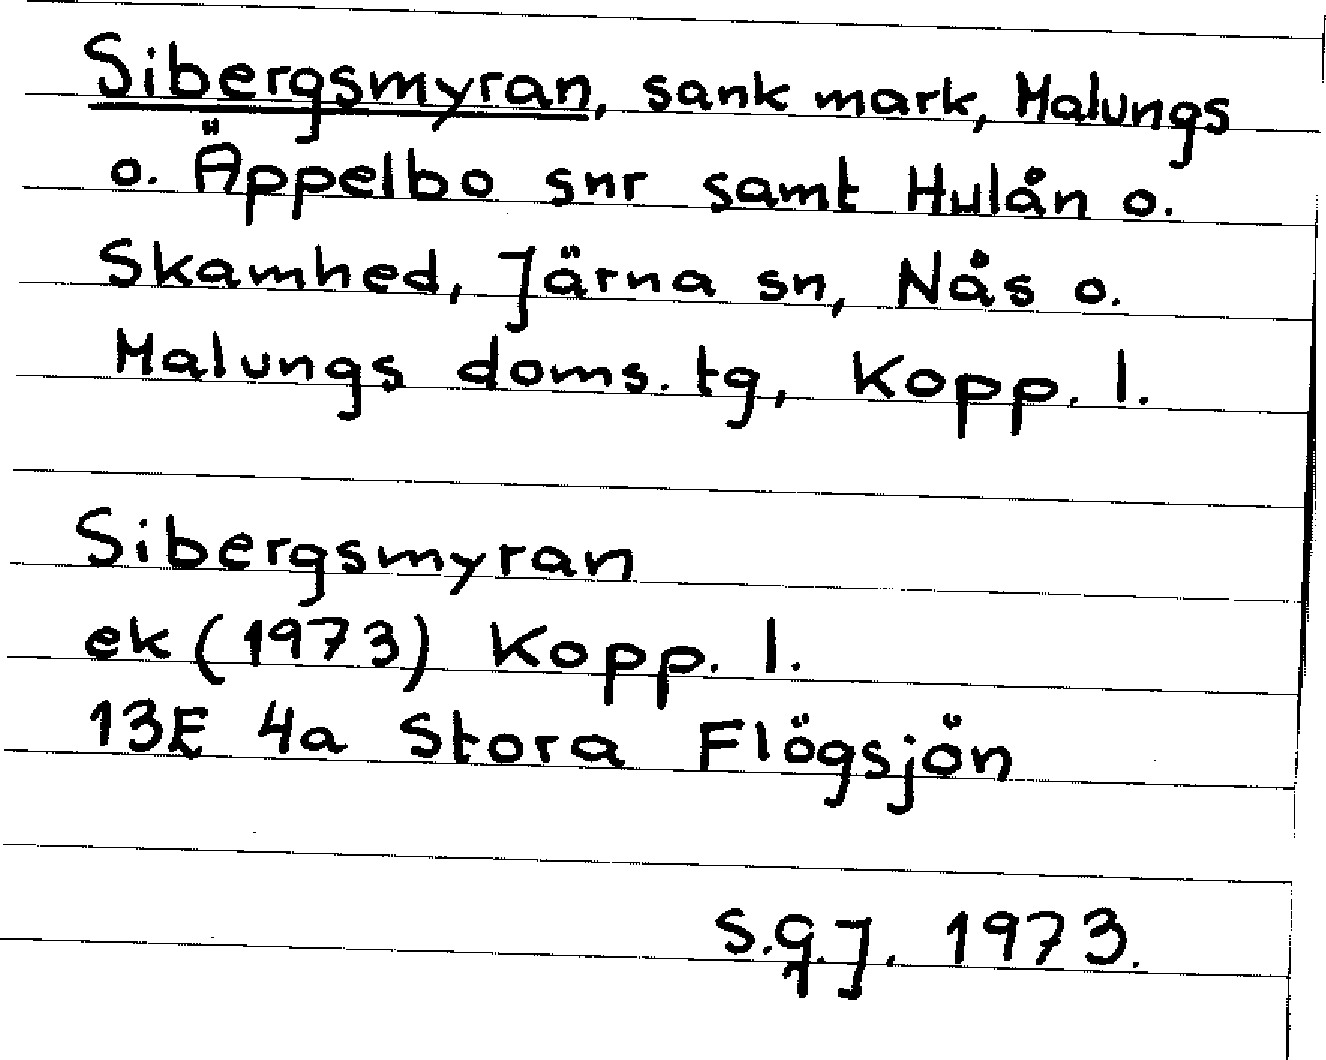 Sibergsmyran, sank mark, Malungs
o. Äppelbo snr samt Hulån o.
Skamhed, Järna sn, Nås o.
Malungs doms. tg, Kopp. l.
Sibergsmyran
ek (1973) Kopp. l.
13E 4a Stora Flögsjön
S.G.J. 1973.